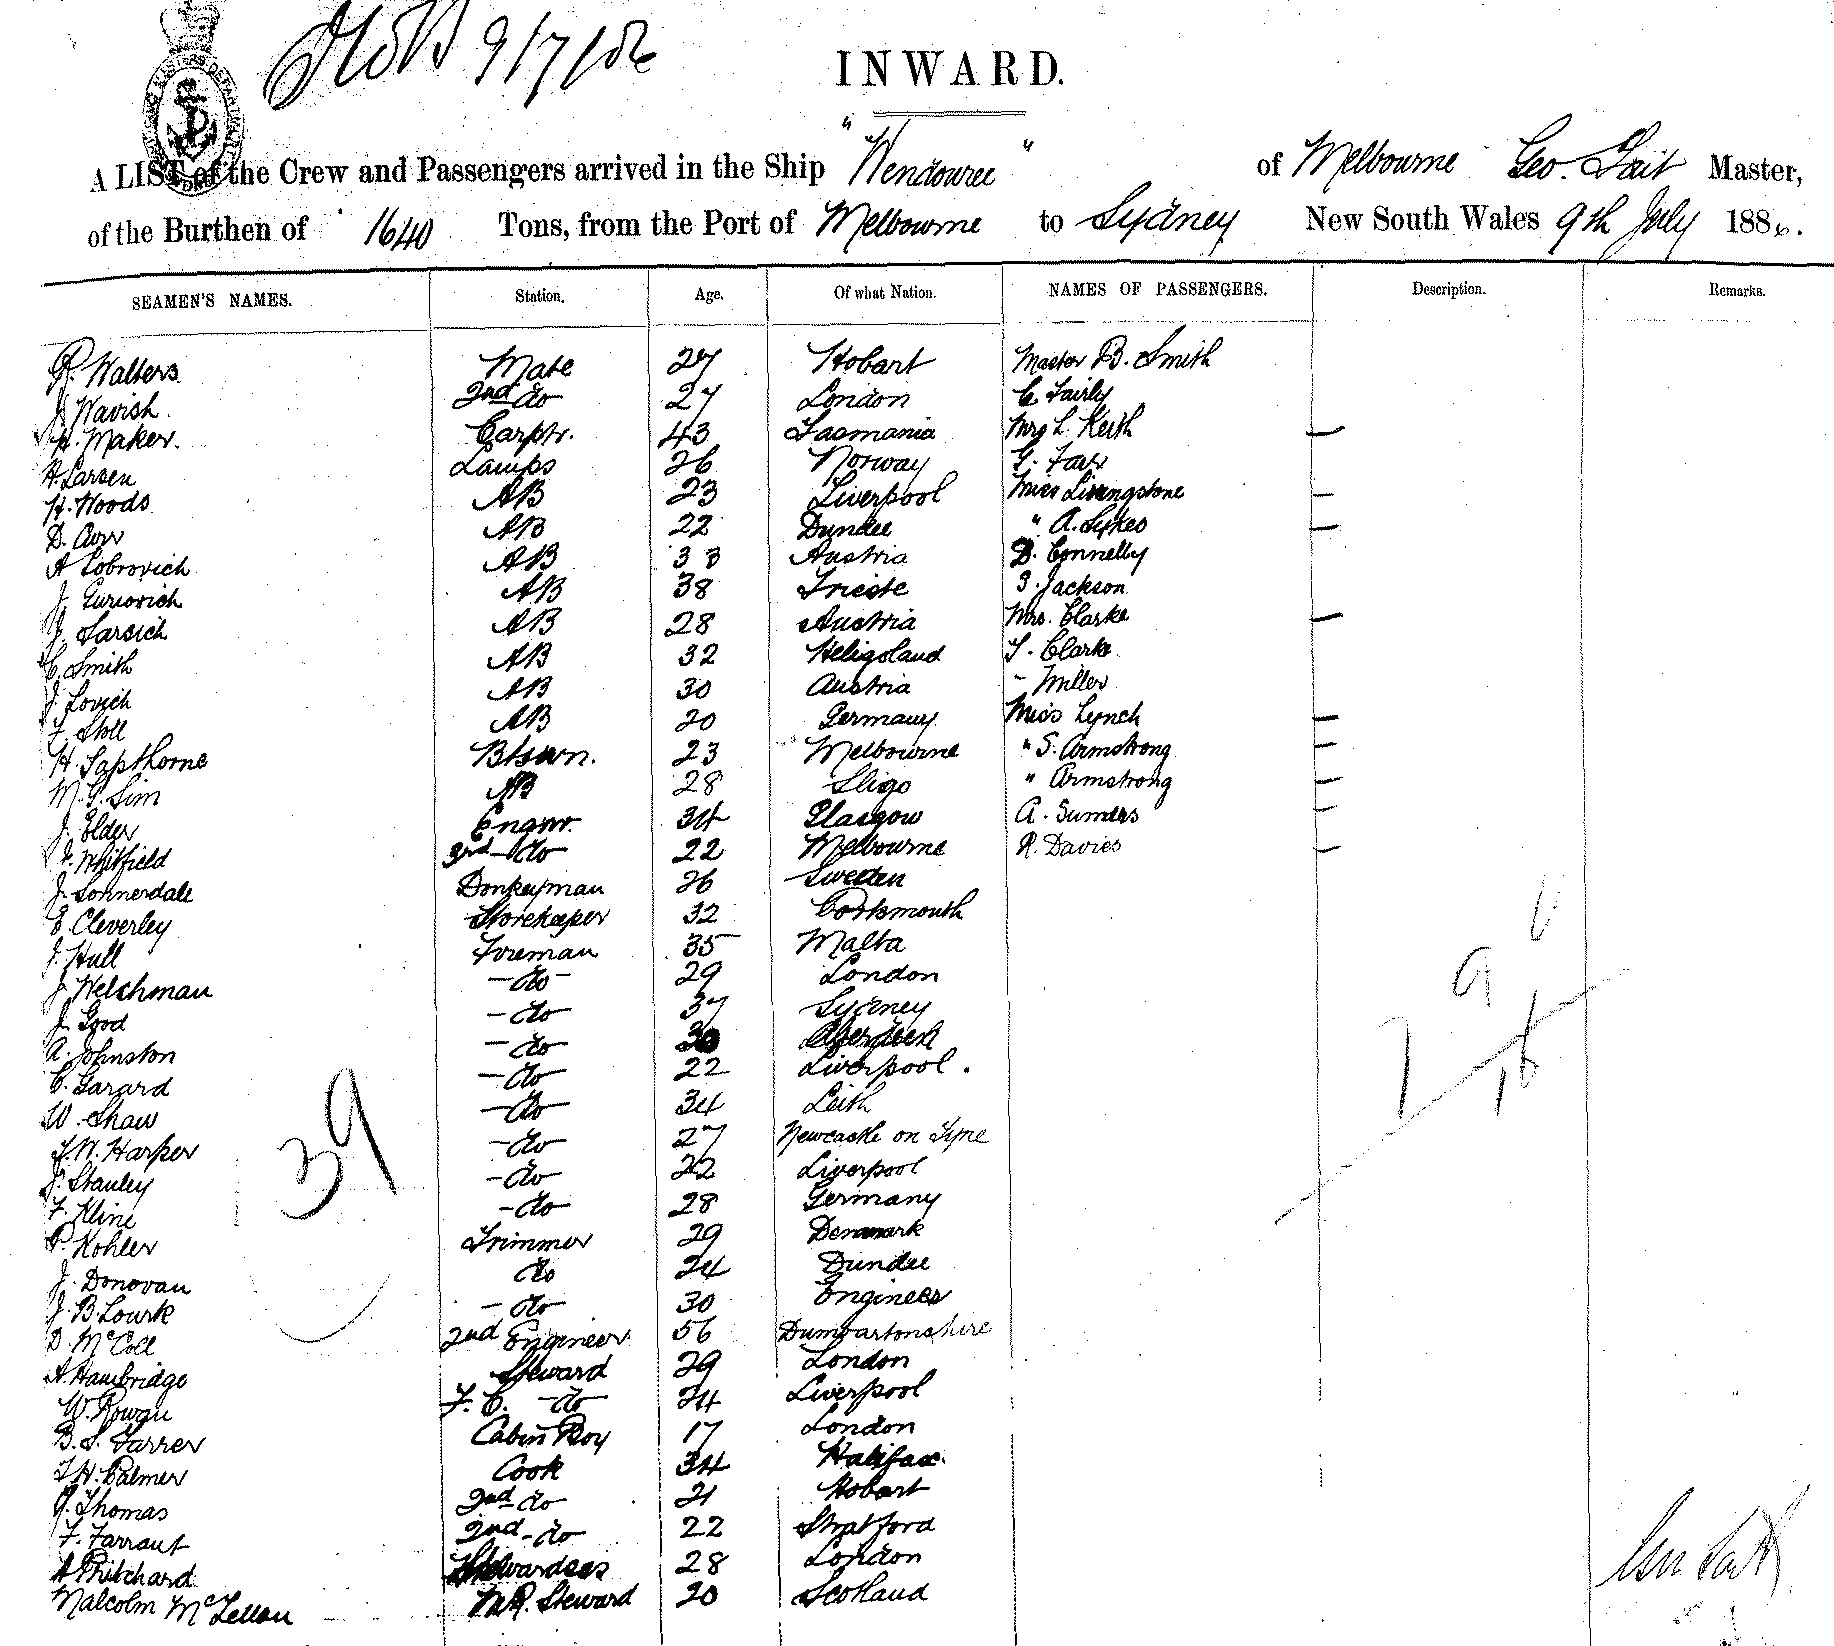 9/7/86
INWARD.
A LIST of the Crew and Passengers arrived in the Ship "Wendouree" of Melbourne Geo. Tait Master,
of the Burthen of 1640 Tons, from the Port of Melbourne to Sydney New South Wales 9th July 1886.
SEAMEN'S NAMES. Station. Age. Of what Nation. NAMES OF PASSENGERS. Description. Remarks.
R. Walters Mate 27 Hobart Master B. Smith
J. Wavish 2nd do 27 London C Fairly
H. Maker. Carptr. 43 Tasmania Mrs L. Keith —
H. Larsen Lamps 26 Norway G. Farr
H. Woods AB 23 Liverpool Miss Livingstone —
D. Carr AB 22 Dundee " A. Sykes —
A Lobrovich AB 33 Austria D. Connelly
J. Gurovich AB 38 Trieste S. Jackson
J. Sarsich AB 28 Austria Mrs. Clarke —
C. Smith AB 32 Heligoland T. Clarke
J. Lovich AB 30 Austria - Miller
F. Stoll AB 20 Germany Miss Lynch —
H. Sapthorne Btswn. 23 Melbourne " S. Armstrong —
M. G. Sim AB 28 Sligo " Armstrong —
J. Elder Engnr. 34 Glasgow A. Sumers —
J. Whitfield 3rd do 22 Melbourne R. Davies —
J. Sonnerdale Donkeyman 26 Sweden
E. Cleverley Storekeeper 32 Portsmouth
J. Hull Foreman 35 Malta
J. Welchman - do - 29 London
J. Good - do 37 Sydney
A. Johnston - do 30 Aberdeen
C. Garard - do 22 Liverpool.
W. Shaw - do 34 Leith
T. W. Harper - do 27 Newcastle on Tyne
J. Stanley - do 22 Liverpool
F. Kline - do 28 Germany
P. Kohler Trimmer 29 Denmark
J. Donovan do 24 Dundee
J. B. Lourk - do 30 Engineer
D. McColl 2nd Engineer 56 Dumbartonshire
A Hambridge Steward 29 London
W. Rowan F. C. do 24 Liverpool
B. S. Farrer Cabin Boy 17 London
T. H. Palmer Cook 34 Halifax.
G. Thomas 2nd do 21 Hobart
F. Farrant 2nd - do 22 Stratford
A Pritchard Stewardess 28 London
Malcolm McLellan M.R. Steward 20 Scotland
39
9
7
16
Geo Tait